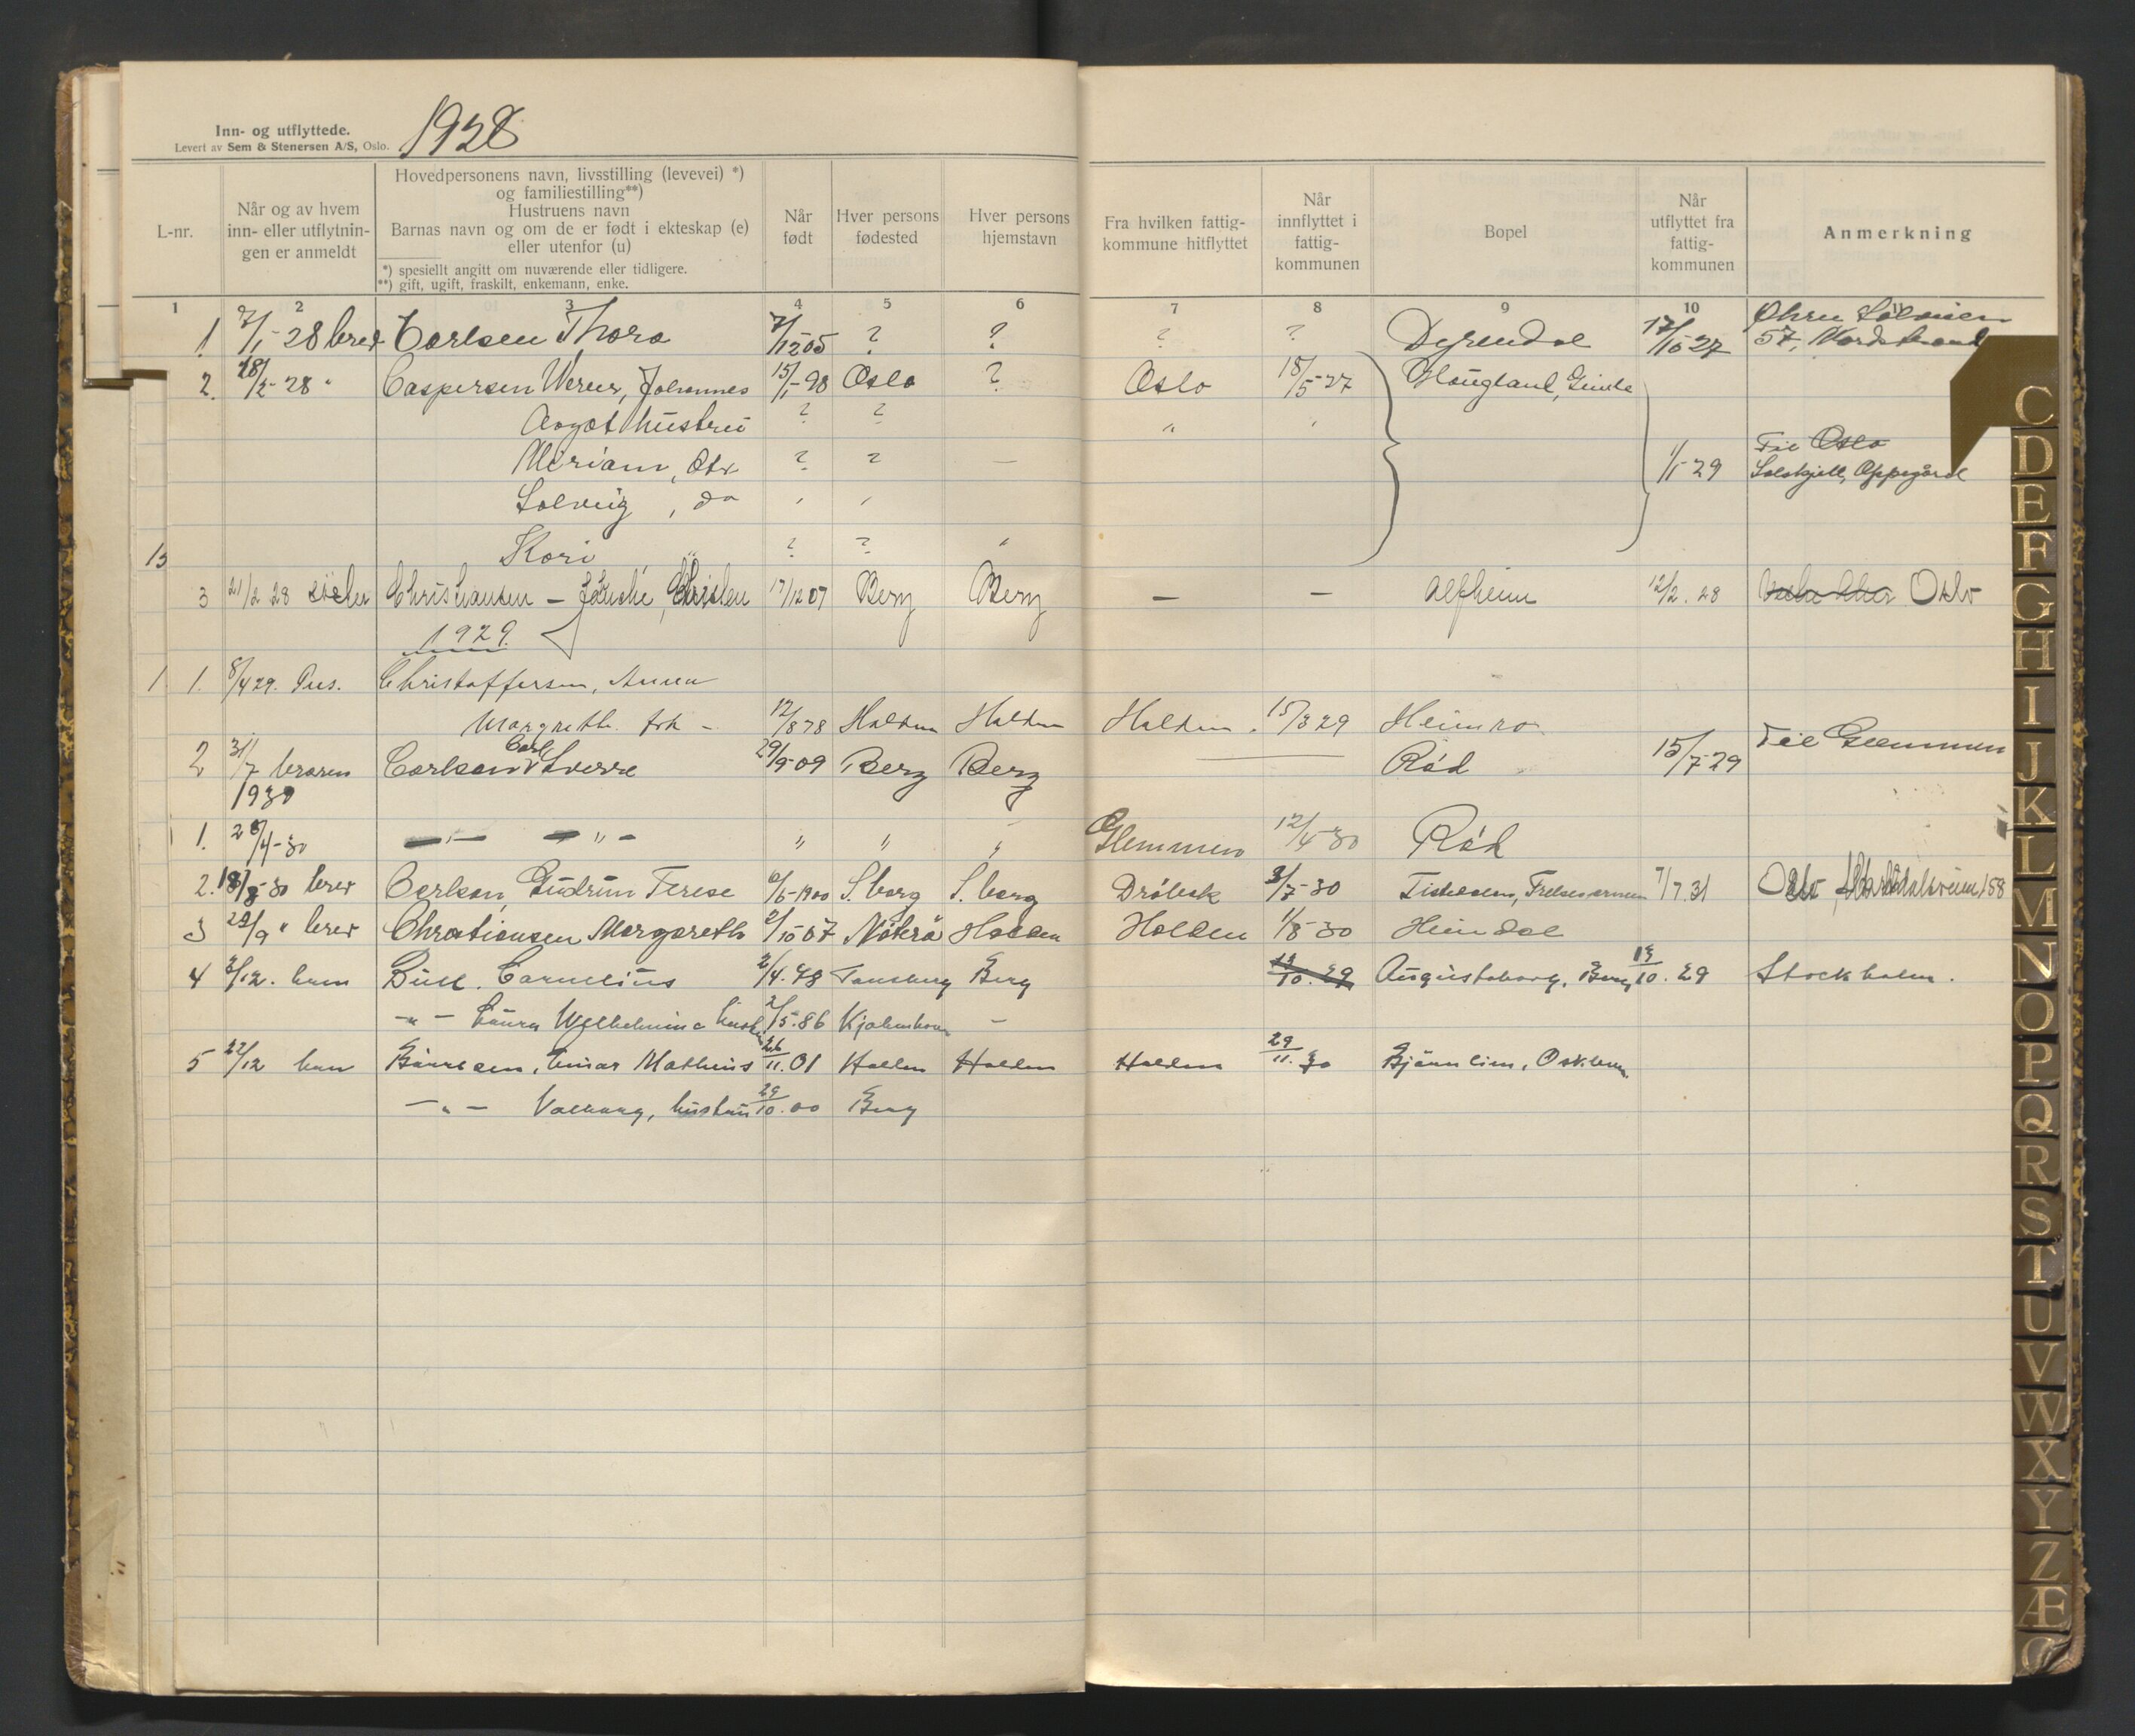 Inn- og utflyttede.
Levert av Sem & Stenersen A/S, Oslo.
1928
L-nr.
Når og av hvem inn- eller utflytnin-gen er anmeldt
Hovedpersonens navn, livsstilling (levevei) *) og familiestilling**)
Hustruens navn
Barnas navn og om de er født i ekteskap (e) eller utenfor (u)
*) spesiellt angitt om nuværende eller tidligere.
**) gift, ugift, fraskilt, enkemann, enke.
Når født
Hver persons fødested
Hver persons hjemstavn
Fra hvilken fattig-kommune hitflyttet
Når innflyttet i fattig-kommunen
Bopel
Når utflyttet fra fattig-kommunen
Anmerkning
1 2 3 4 5 6 7 8 9 10 11
1. 7/1-28 brev Carlsen Thora 7/12 05 ? ? ? ? Dyrendal 17/10 27 57, Nordstrand
2. 28/2-28 " Caspersen Werner, Johannes 15/1-98 Oslo ? Oslo 18/5-27 Haugland,
Aagot hustru ? ? " "
Miriam, dtr ? ? — 1/1-29 Til Oslo
Solveig, do " " Solskjell, Oppegård
15 Kari " ? ? "
3 21/2 28 Christiansen — 17/12 07 Berg Berg — — Alfheim 12/2. 28 Oslo
1929.
1 1. 8/4 29. Christoffersen, Anna
Margrethe frk - 12/8 78 Halden Halden Halden. 15/3 29 Heimro
2 31/7 broren Carlsen Carl Sverre 29/9-09 Berg Berg — Rød 15/7-29 Til Glemmen
1930
1. 28/4-30 — " — — " — " " " Glemmen 12/4 30 Rød
2. 18/8-30 brev Carlsen, Gudrun Terese 6/6-1900 S.borg S.borg Drøbak 3/7-30 Tistedalen, Frelsesarmeen 7/7.31 Oslo
3 29/9 " brev Christiansen Margareth 2/10 07 Halden Halden 1/8-30 Heimdal
4 2/12. ham Bull. Cornelius 2/4.48 Tønsberg Berg 13/10. 29 Augustaborg, Berg 13/10. 29 Stockholm.
— " — Laura Wilhelmine hustru 2/5.86 Kjøbenhavn —
5 22/12 ham Einar Matheus 26/11.01 Halden Halden Halden 29/11. 30
— " — Valborg, hustru 29/10.00 Berg
C
D
E
F
G
H
I
J
K
L
M
N
O
P
Q
R
S
T
U
V
W
X
Y
Z
Æ
Ø